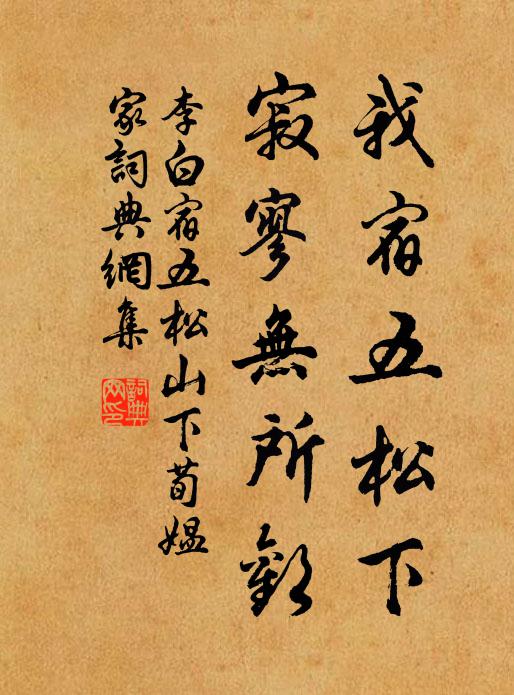 我宿五松下
寂寥無所歡
李白宿五松山下荀媼
家詞典網集
詞典網印